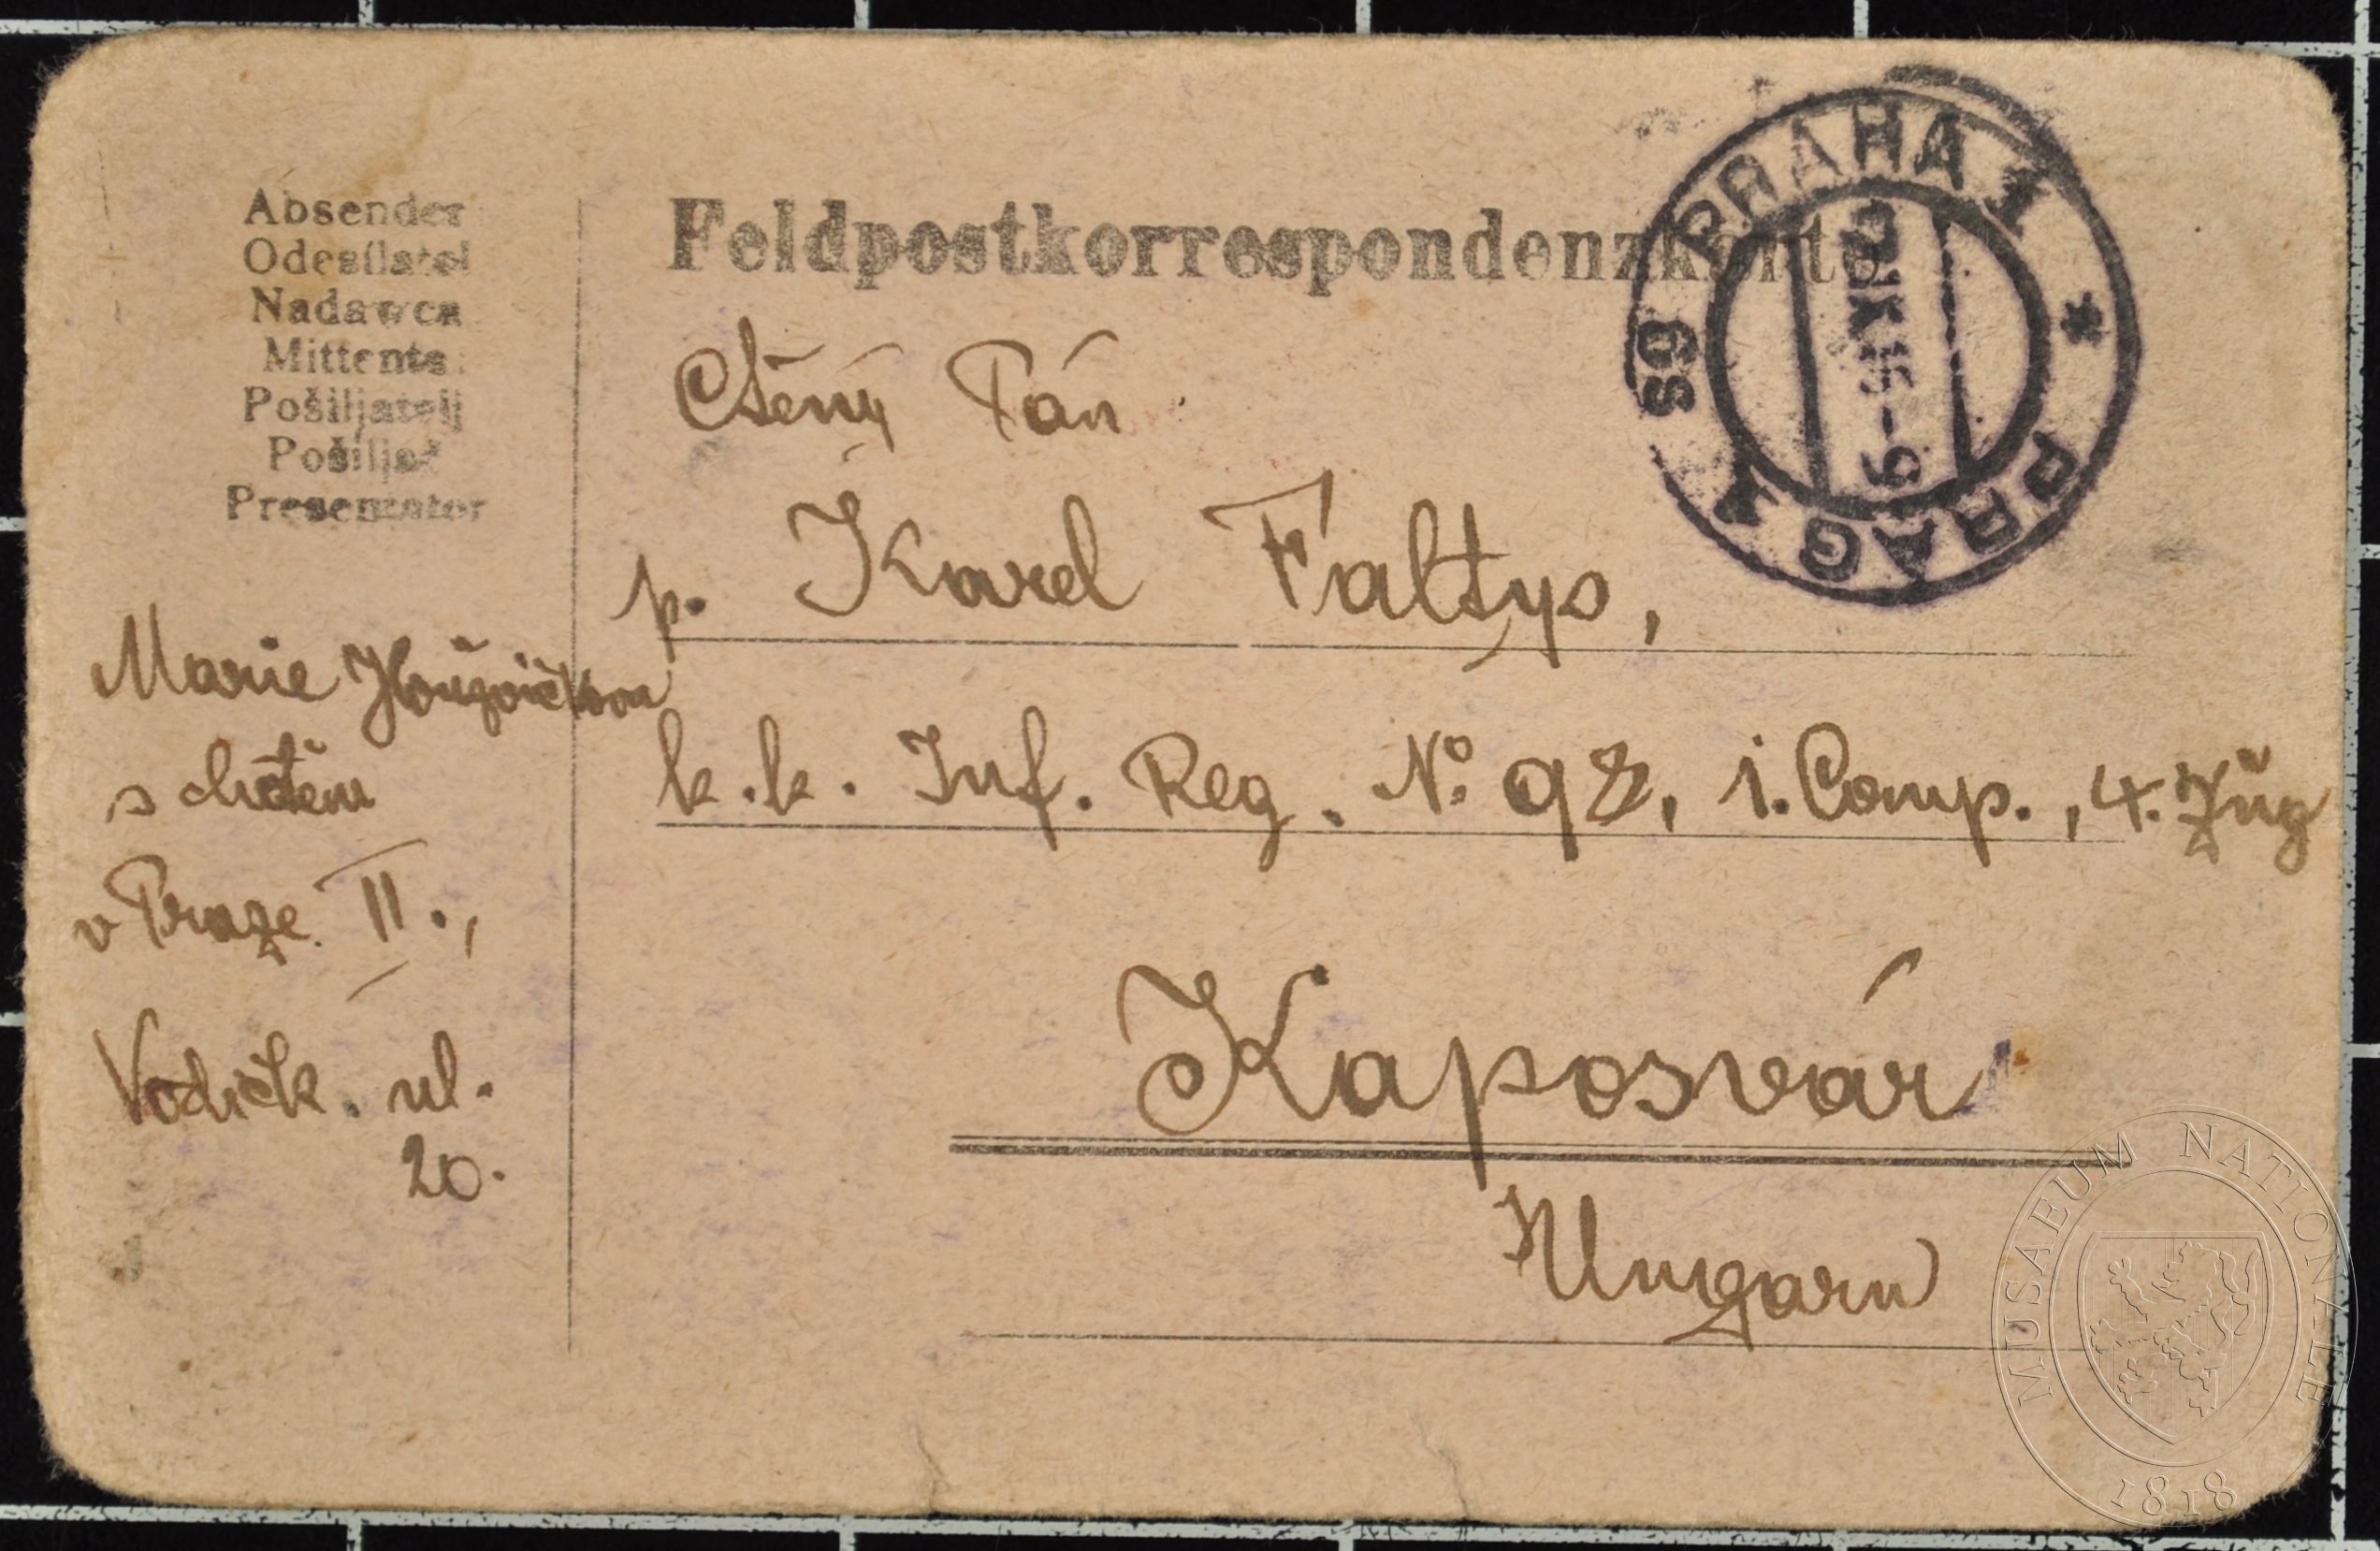 Absender
Odesílatel
Nadawca
Mittente
Pošiljatelj
Pošiljač
Presentator
Marie
s chotěm
v Praze II.,
Vodičk. ul.
20.
Feldpostkorrespondenzkarte
Ctěný Pán
p. Karel Faltys,
k.k. Inf. Reg. No 98, 1. Comp., 4. Zŭg
Kaposvár
Ungarn
PRAHA 1
PRAG 1
IX 15-9
MUSAEUM NATIONALE
1818